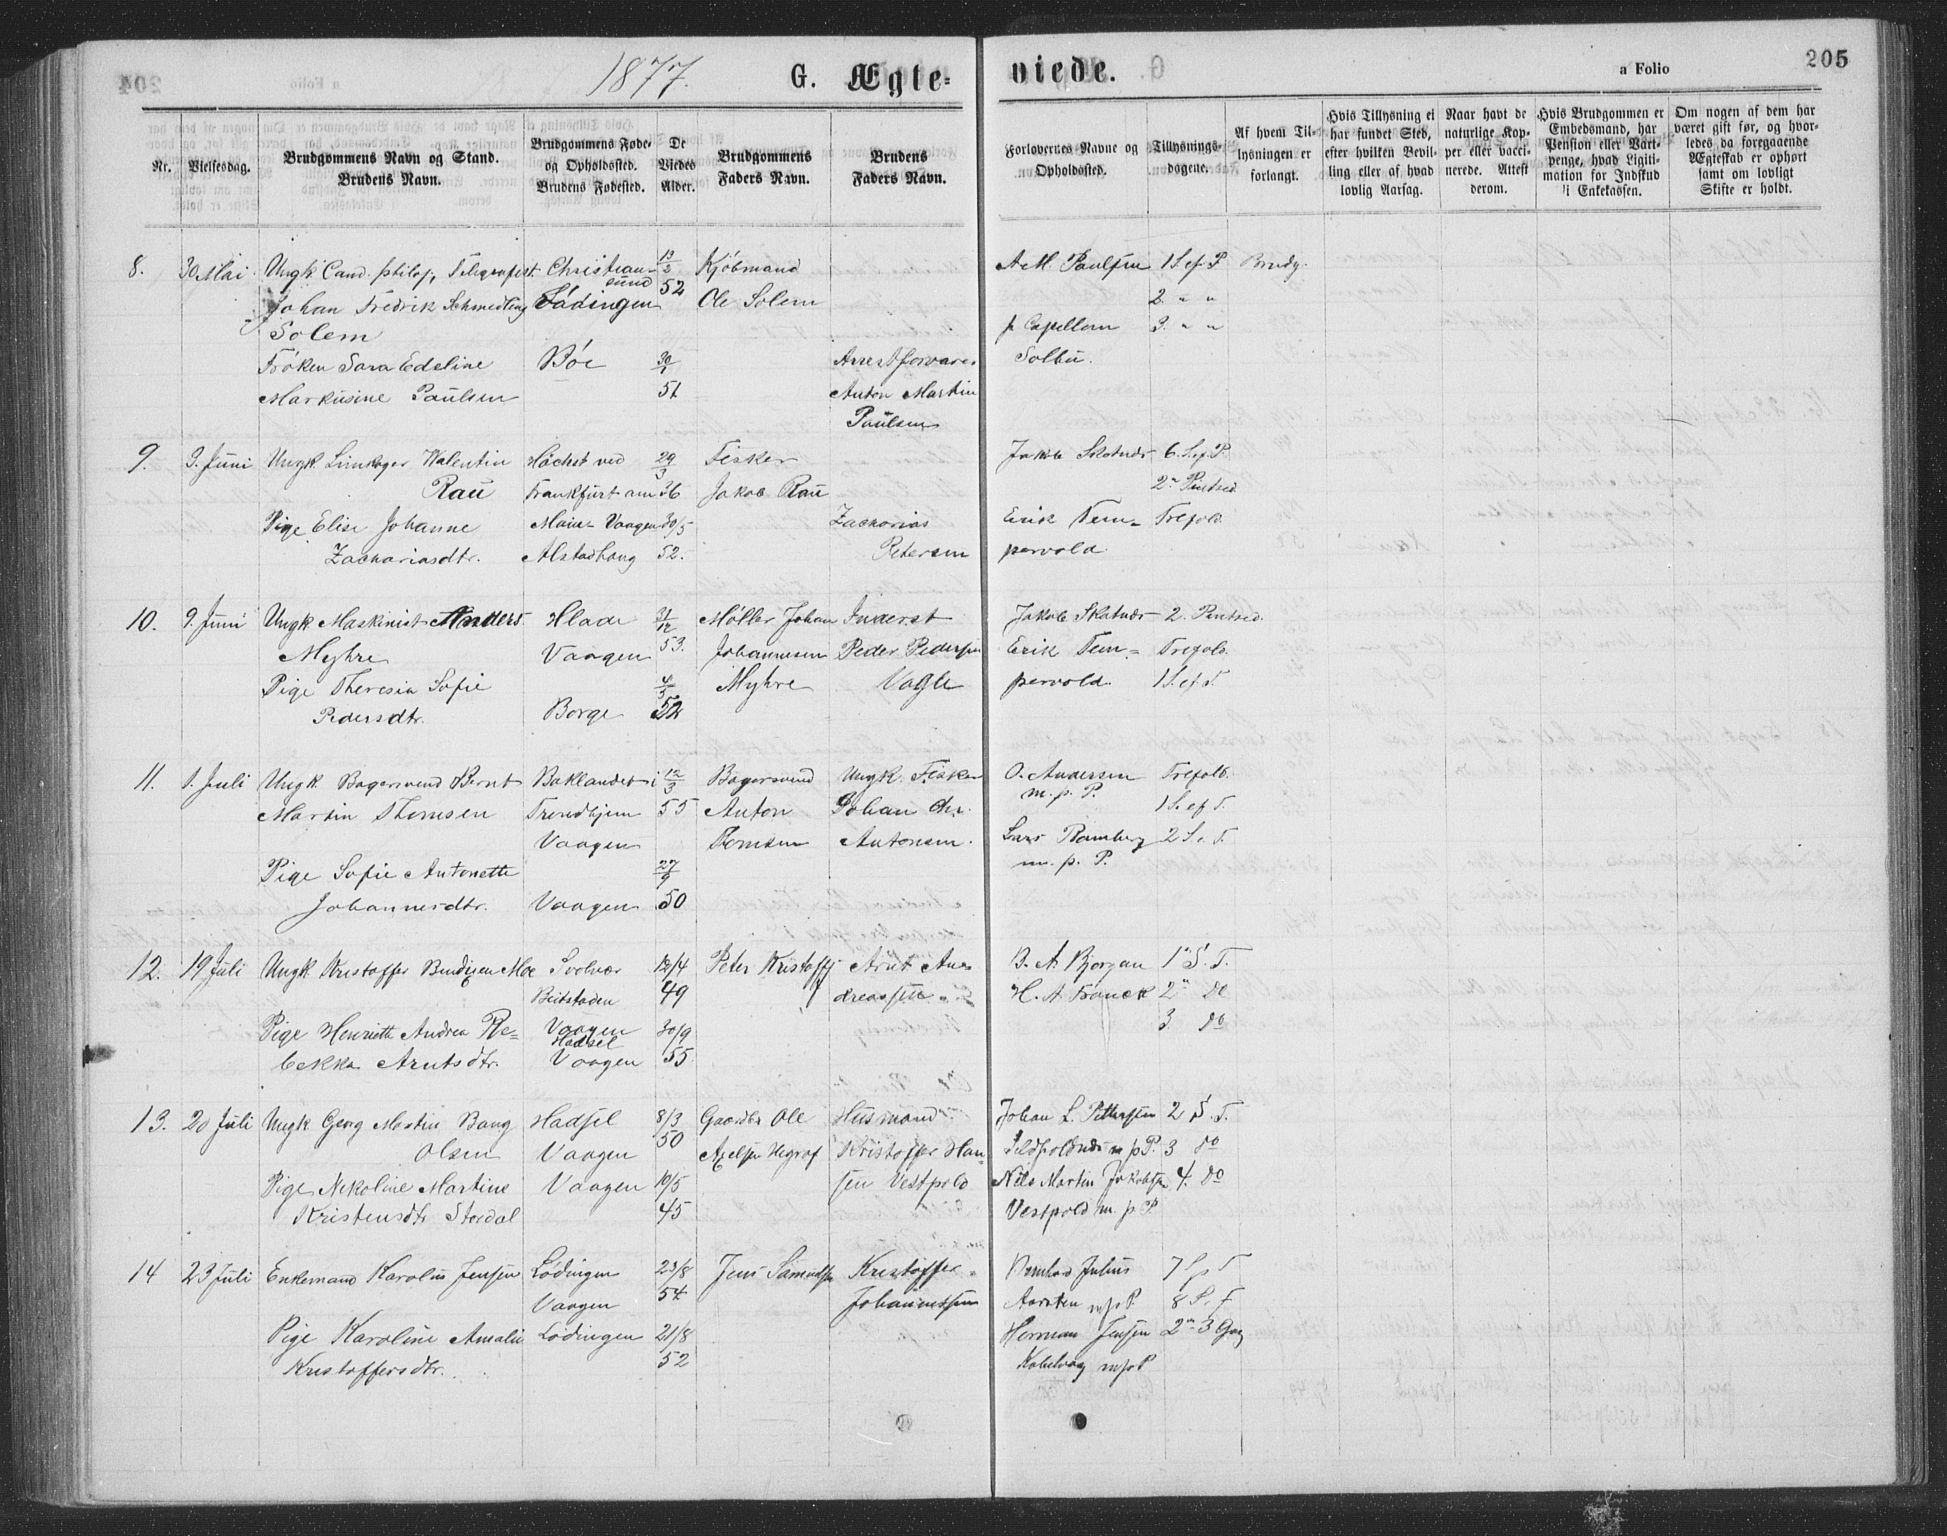 1877.
G. Ægte-
viede.
a Folio
205
Nr.
Vielsesdag.
Brudgommens Navn og Stand.
Brudens Navn.
Brudgommens Føde-
og Opholdssted.
Brudens Fødested.
De
Viedes
Alder.
Brudgommens
Faders Navn.
Brudens
Faders Navn.
Forlovernes Navne og
Opholdssted.
Tillysnings-
dagene.
Af hvem Til-
lysningen er
forlangt.
Hvis Tillysning ei
har fundet Sted,
efter hvilken Bevil-
ling eller af hvad
lovlig Aarsag.
Naar havt de
naturlige Kop-
per eller vacci-
nerede. Attest
derom.
Hvis Brudgommen er
Embedsmand, har
Pension eller Vart-
penge, hvad Ligiti-
mation for Indskud
i Enkekassen.
Om nogen af dem har
været gift før, og hvor-
ledes da foregaaende
Ægteskab er ophørt
samt om lovligt
Skifte er holdt.
8. 30 Mai Ungk. Cand. philos, Telegrafist Christian- 13/2 Kjöbmand A. M. Paulsen 1 S. ef. P Brudg.
sund
Johan Fredrik Schmedling Lödingen 52 Ole Solem 2. " "
Solem p Capellem 3. " "
Fröken Sara Edeline Böe 30/1 Arrestforvarer Solbu.
Markusine Paulsen 51 Anton Martin
Paulsen
9. 3. Juni Ungk. Limkoger Valentin Höchst ved 29/3 Fisker Jakob Skotnes 6. S. ef. P.
Rau Frankfurt am 36 Jakob Rau 2 Pintsed.
Pige Elise Johanne Main Vaagen 30/5 Zacharias Erik Tem- Trefold.
Zachariasdtr. Alstadhaug 52. Petersen pervold.
10. 9. Juni Ungk Maskinist Anders Hlade 31/12 Möller Johan Inderst Jakob Skotnes 2. Pintsed.
Myhre Vaagen 53. Johannesen Peder Pedersen Erik Tem- Trefold.
Pige Theresia Sofie 4/5 Myhre Vagle pervold. 1 S. ef. T.
Pedersdtr. Borge 52
11. 1. Juli Ungk. Bagersvend Bernt Baklandet i 12/3 Bagersvend Ungk. Fisker O. Andersen Trefold.
Martin Thomsen Trondhjem 55 Anton Johan Chr. m. p. P. 1 S. ef T.
Vaagen Tomsen Antonsen. Lars Ramberg 2 S. e. T.
Pige Sofie Antonette 27/9 m. p. P.
Johannesdtr. Vaagen 50
12. 19 Juli Ungk Kristoffer Bendixen Moe Svolvær 12/4 Peter Kristoffs Arnt And B. A. Bjorgan 1 S. T.
Beitstaden 49 dreassen H. A. Franck 2 do
Pige Henriette Andrea Re- Vaagen 30/9 3 do
Hadsel
bekka Arntsdtr. Vaagen 55
13. 20 Juli Ungk Georg Martin Bang Hadsel 8/3 Gaardbr Ole Husmand Johan L. Pettersen 2 S. T.
Olsen Vaagen 50 Axelsen Hegrof Kristoffer Han- m p P. 3 do
Pige Nikoline Martine Vaagen 10/5 sen Vestpold Nils Martin Jakobsen 4. do
Kristensdtr Stordal 45 Vestpold m. p P.
14 23 Juli Enkemand Karolius Jensen Lödingen 23/8 Jens Samuelsen Kristoffer Bernhard Julius 7 S p T
Vaagen 54 Johannessen Aarsten m p P 8 S. T
Pige Karoline Amalie Lödingen 21/8 Herman Jensen 2 3 Gg
Kristoffersdtr. 52 Kabelvaag m p P